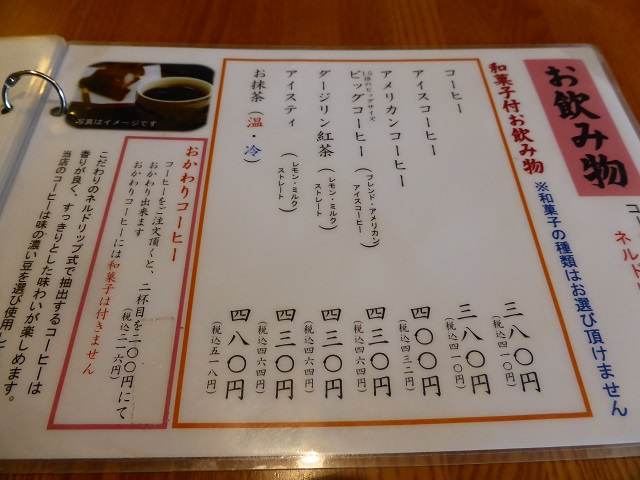 お飲み物
和菓子付お飲み物
※和菓子の種類はお選び頂けません
コーヒー 三八〇円
(税込四一〇円)
アイスコーヒー 三八〇円
(税込四一〇円)
アメリカンコーヒー 四〇〇円
(税込四三二円)
1.5倍のビッグサイズ
ビッグコーヒー (ブレンド・アメリカン アイスコーヒー) 四三〇円
(税込四六四円)
ダージリン紅茶 (レモン・ミルク ストレート) 四三〇円
(税込四六四円)
アイスティ (レモン・ミルク ストレート) 四三〇円
(税込四六四円)
お抹茶(温・冷) 四八〇円
(税込五一八円)
写真はイメージです
おかわりコーヒー
コーヒーをご注文頂くと、二杯目を二〇〇円にて
(税込二一六円)
おかわり出来ます
おかわりコーヒーには和菓子は付きません
こだわりのネルドリップ式で抽出するコーヒーは
香りが良く、すっきりとした味わいが楽しめます。
当店のコーヒーは味の濃い豆を選び使用して